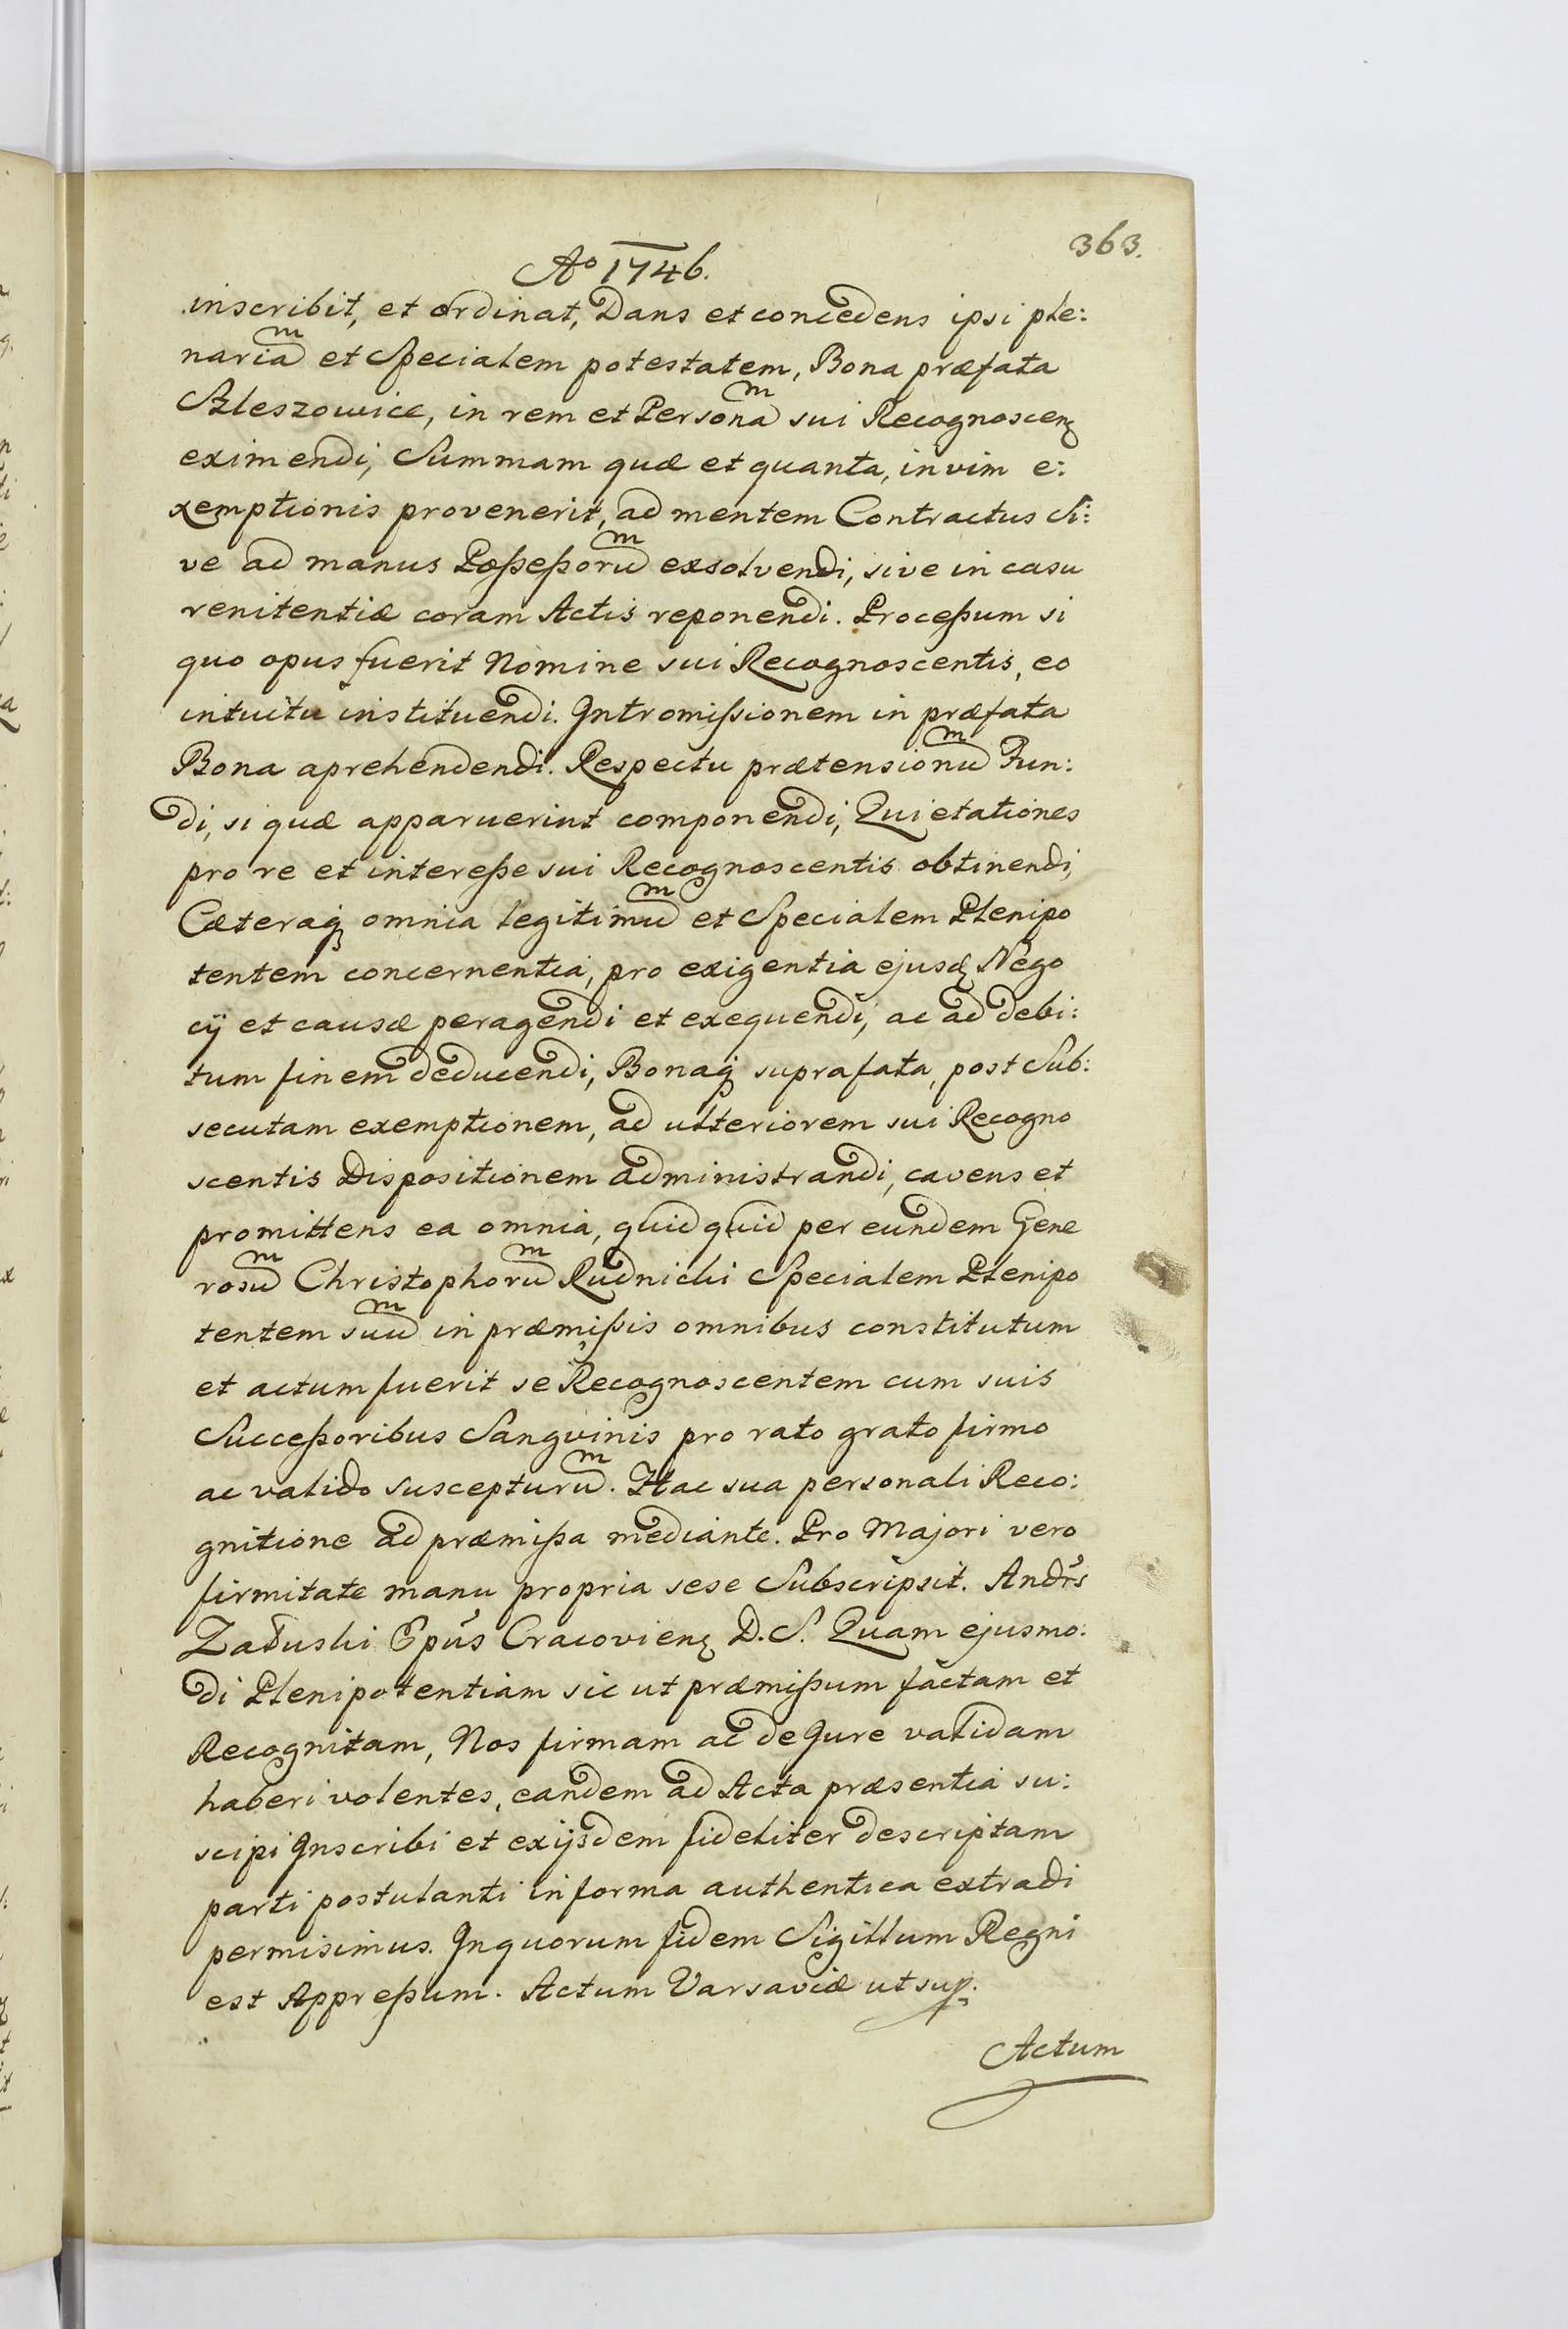 363.
Ao 1746.
inscribit, et ordinat, Dans et concedens ipsi ple:
nariam et Specialem potestatem, Bona præfata
Szleszowice, in rem et Personam sui Recognoscen
eximendi, Summam quæ et quanta, in vim e:
xemptionis provenerit, ad mentem Contractus si:
ve ad manus Poßeßorum exsolvendi, sive in casu
renitentiæ coram Actis reponendi. Proceßum si
quo opus fuerit Nomine sui Recognoscentis, eo
intuitu instituendi. Intromißionem in præfata
Bona aprehendendi. Respectu prætensionum Fun:
di, si quæ apparuerint componendi, Quietationes
pro re et intereße sui Recognoscentis obtinendi,
Cæteraq omnia legitimum et Specialem Plenipo
tentem concernentia, pro exigentia ejusd Nego
cÿ et causæ peragendi et exequendi, ac ad debi:
tum finem deducendi, Bonaq suprafata, post Sub:
secutam exemptionem, ad ulteriorem sui Recogno
scentis Dispositionem administrandi, cavens et
promittens ea omnia, quidquid per eundem Gene
rosum Christophorum Rudnicki Specialem Plenipo
tentem suum in præmißis omnibus constitutum
et actum fuerit se Recognoscentem cum suis
Succeßoribus Sangvinis pro rato grato firmo
ac valido suscepturum. Hac sua personali Reco:
gnitione ad præmißa mediante. Pro Majori vero
firmitate manu propria sese Subscripsit. Andrs
Załuski Epus Cracovien D. S. Quam ejusmo:
di Plenipotentiam sic ut præmißum factam et
Recognitam, Nos firmam ac de Jure validam
haberi volentes, eandem ad Acta præsentia su:
scipi Inscribi et exijsdem fideliter descriptam
parti postulanti in forma authentica extradi
permisimus. In quorum fidem Sigillum Regni
est Appreßum. Actum Varsaviæ ut sup.
Actum